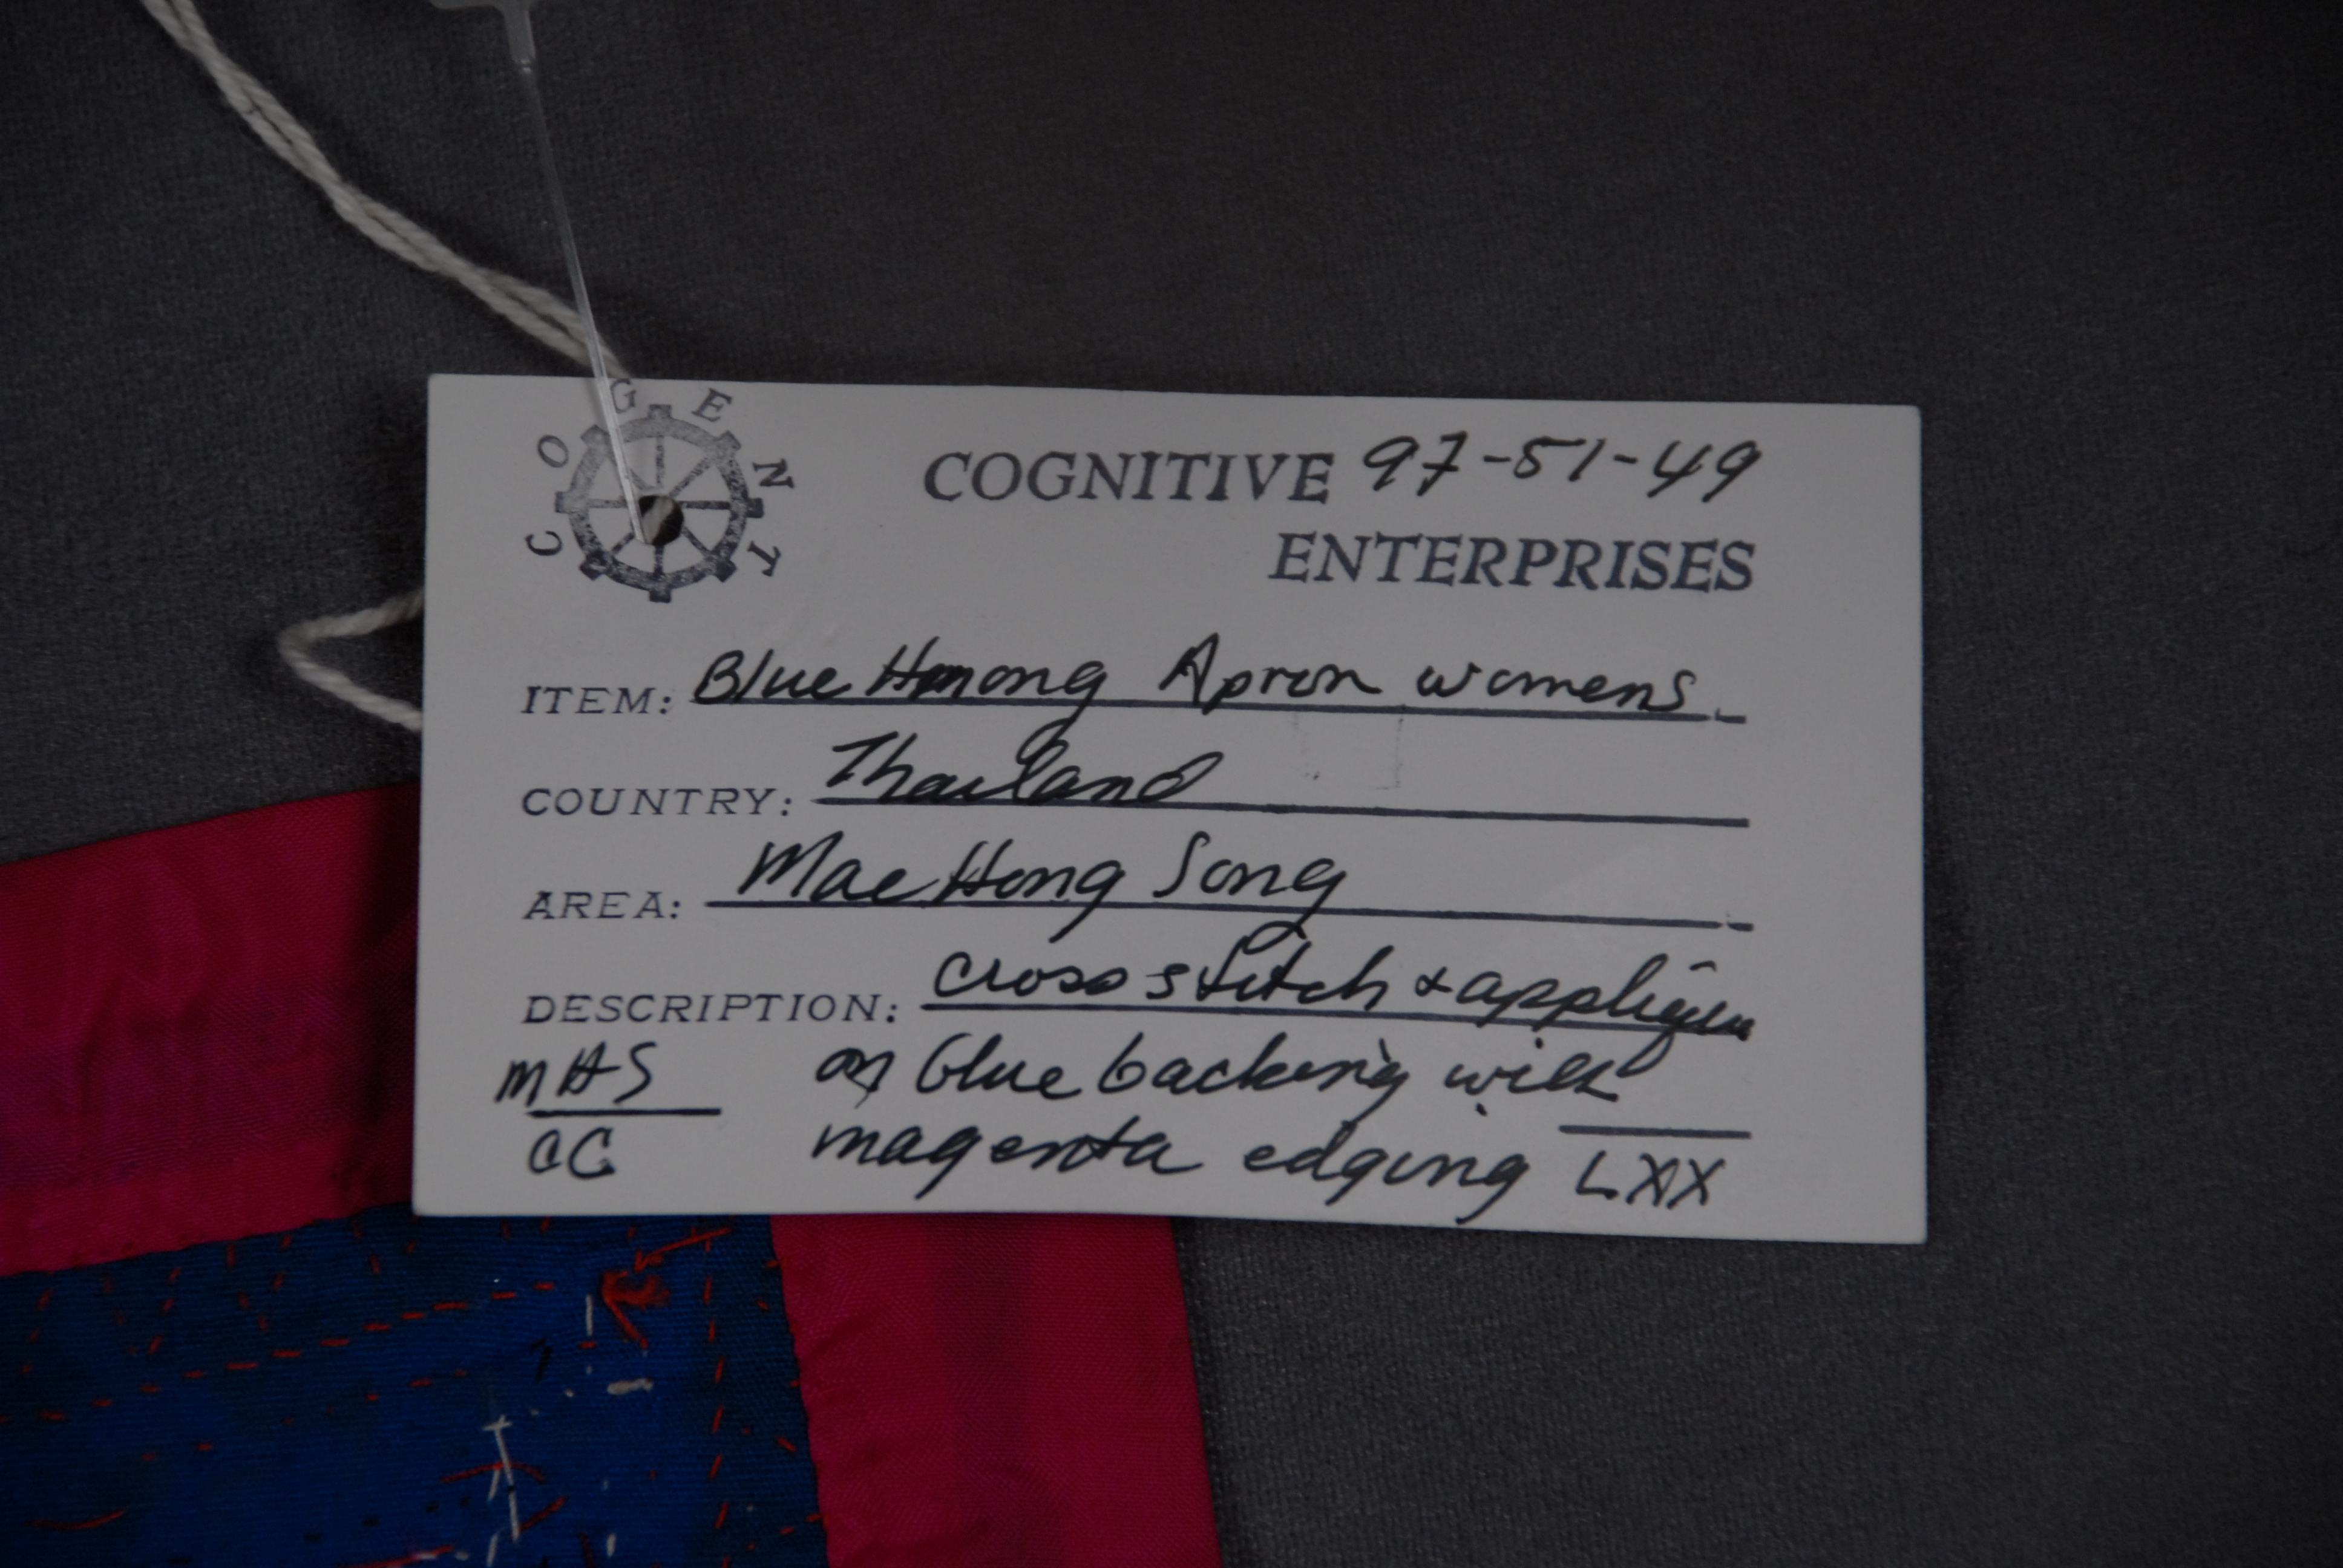 COGENT
COGNITIVE 97-51-49
ENTERPRISES
ITEM: Blue Hmong Apron womens
COUNTRY: Thailand
AREA: Mae Hong Song
DESCRIPTION: cross stitch & applique
on blue backing with
magenta edging
MHS
CC
LXX